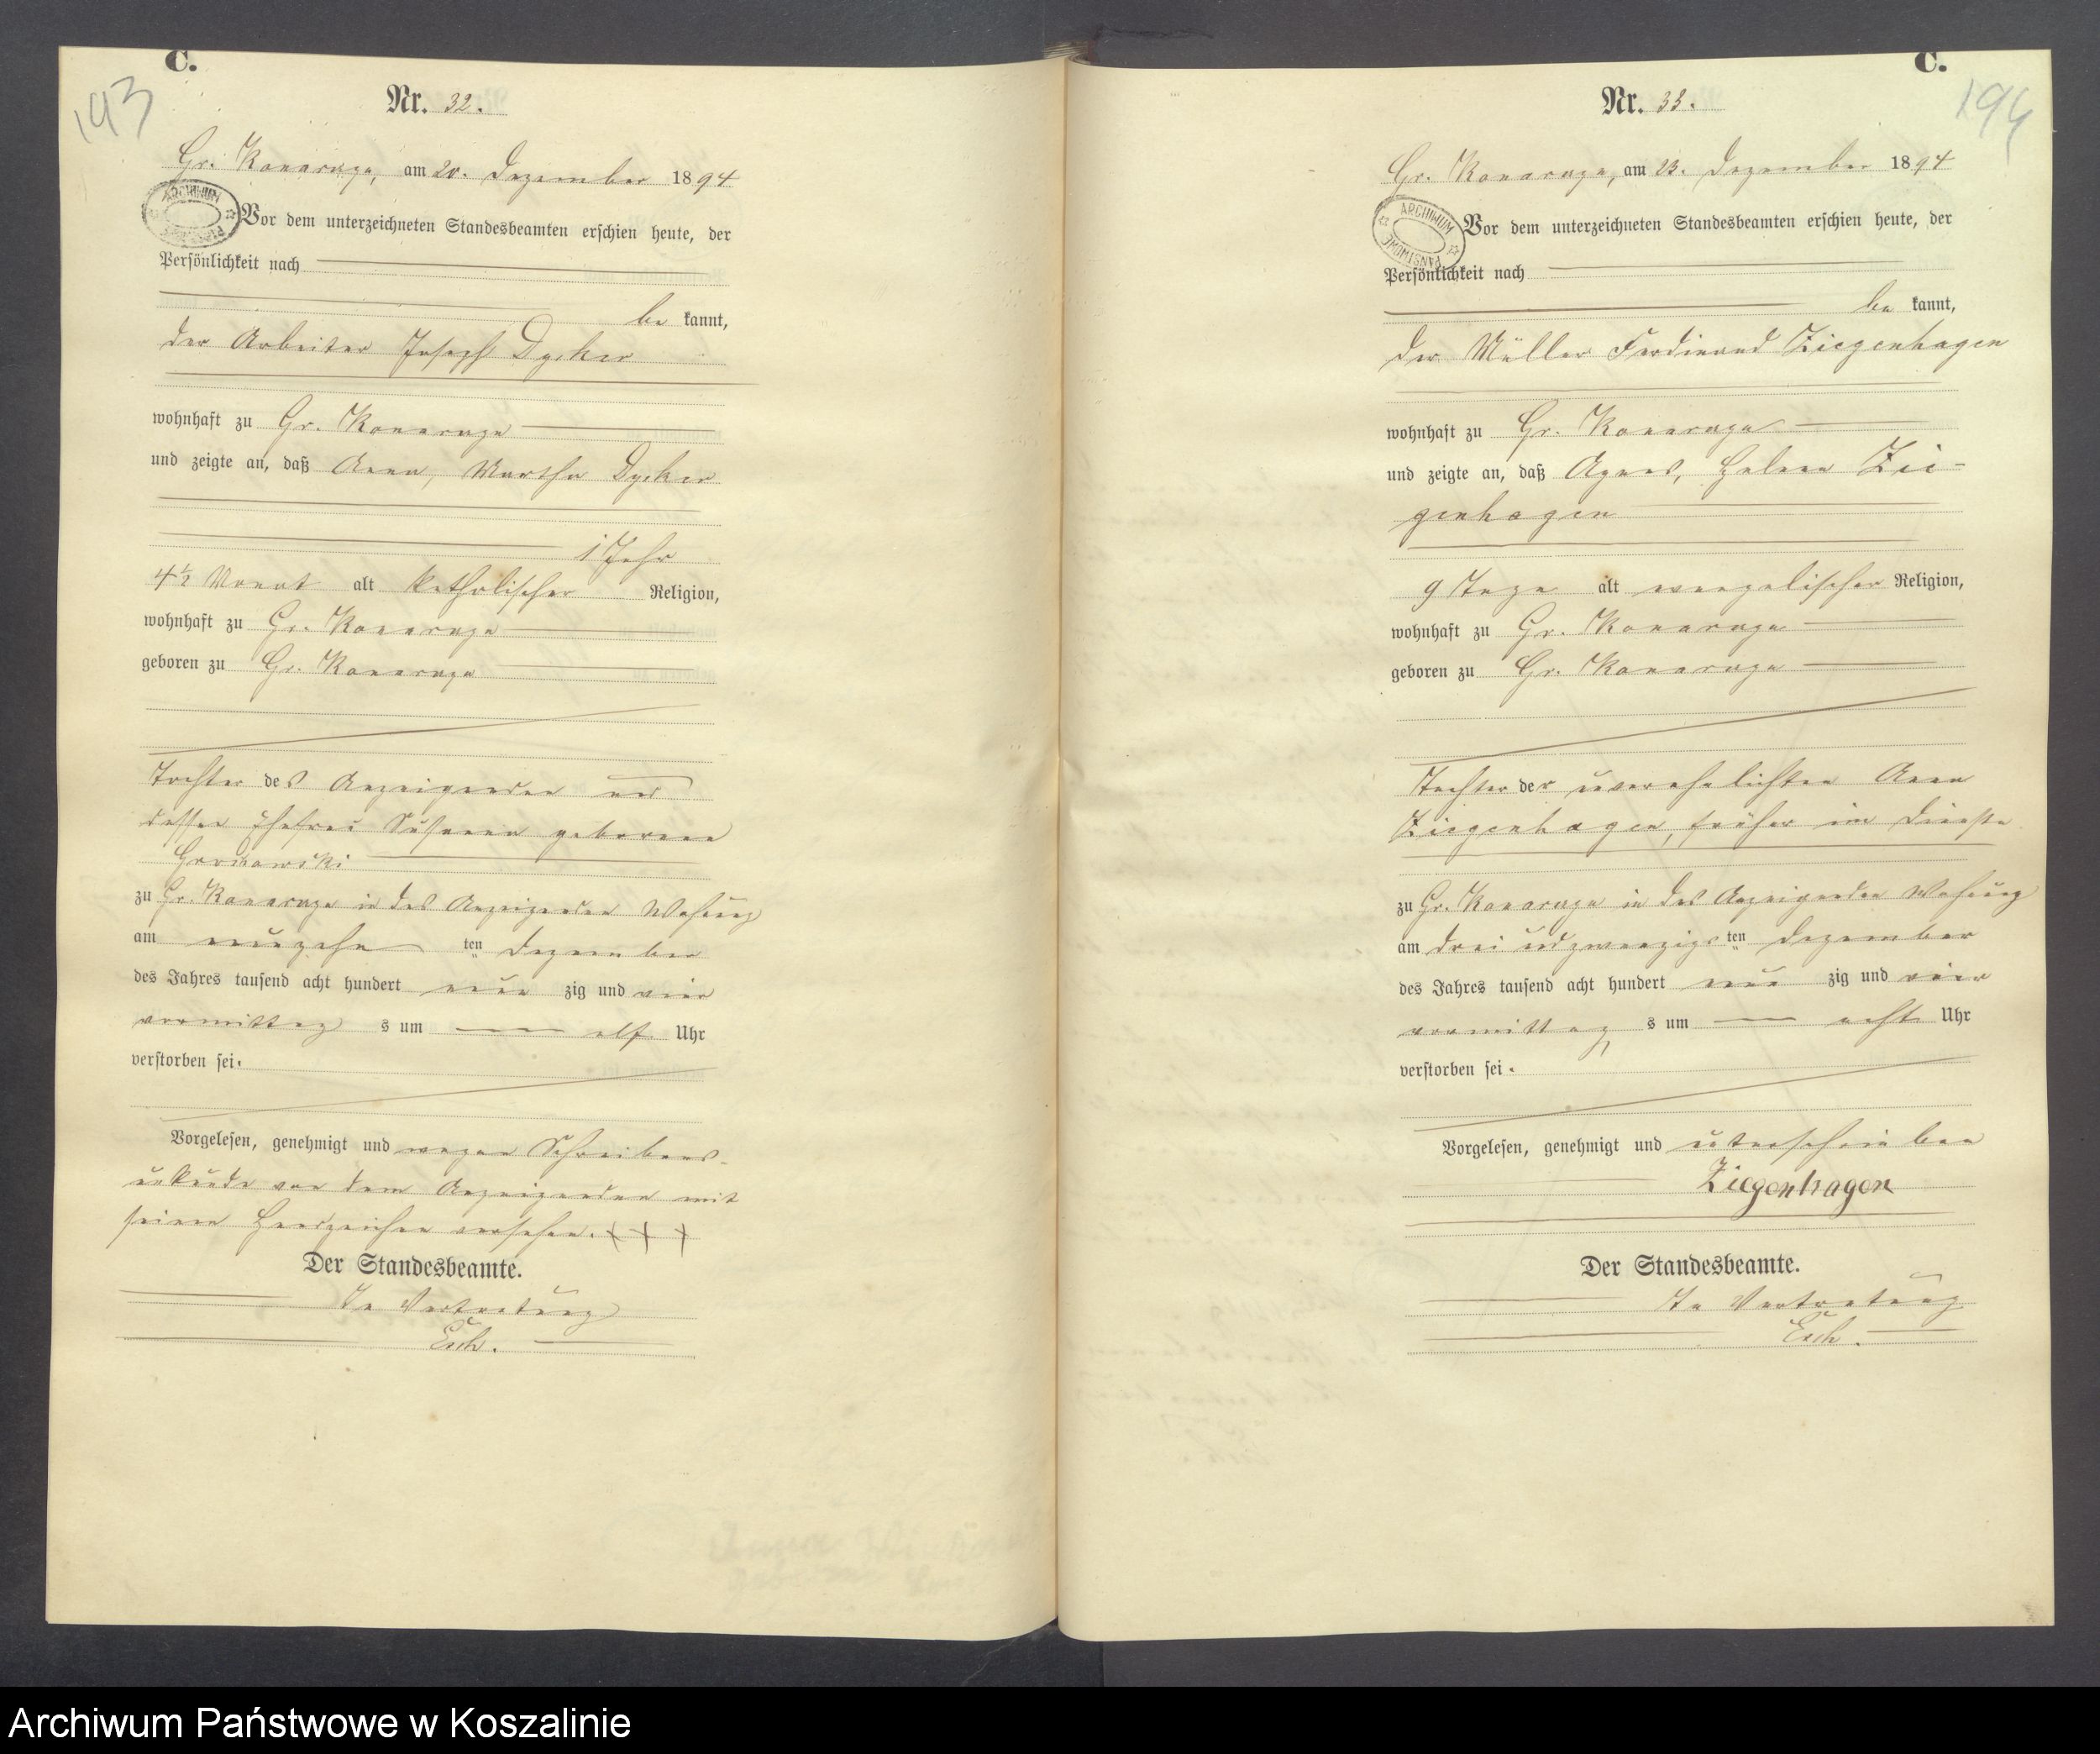 C.
193
Nr. 32.
Gr. Konarczyn, am 20. Dezember 1894
ARCHIWUM
Vor dem unterzeichneten Standesbeamten erschien heute, der
Persönlichkeit nach
be kannt,
der Arbeiter Joseph
wohnhaft zu Gr. Konarczyn
und zeigte an, daß Anna, Martha
1 Jahr
4½ Monat alt katholischer Religion,
wohnhaft zu Gr. Konarczyn
geboren zu Gr. Konarczyn
Tochter des Anzeigenden und
dessen Ehefrau Susanna geborene
zu Gr. Konarczyn in des Anzeigenden Wohnung
am neunzehn ten Dezember
des Jahres tausend acht hundert neun zig und vier
vormittag s um elf Uhr
verstorben sei.
Vorgelesen, genehmigt und wegen Schreibens-
unkunde von dem Anzeigenden mit
seinem Handzeichen versehen. + + +
Der Standesbeamte.
In Vertretung
C.
194
Nr. 33.
Gr. Konarczyn, am 23. Dezember 1894
ARCHIWUM PAŃSTWOWE
Vor dem unterzeichneten Standesbeamten erschien heute, der
Persönlichkeit nach
be kannt,
der Müller Ferdinand Ziegenhagen
wohnhaft zu Gr. Konarczyn
und zeigte an, daß Agnes, Helene Zie-
genhagen
9 Tage alt evangelischer Religion,
wohnhaft zu Gr. Konarczyn
geboren zu Gr. Konarczyn
Tochter der unverehelichten Anna
Ziegenhagen, früher im Dienste
zu Gr. Konarczyn in des Anzeigenden Wohnung
am drei und zwanzigs ten Dezember
des Jahres tausend acht hundert neun zig und vier
vormittag s um acht Uhr
verstorben sei.
Vorgelesen, genehmigt und unterschrieben
Ziegenhagen
Der Standesbeamte.
In Vertretung
Archiwum Państwowe w Koszalinie